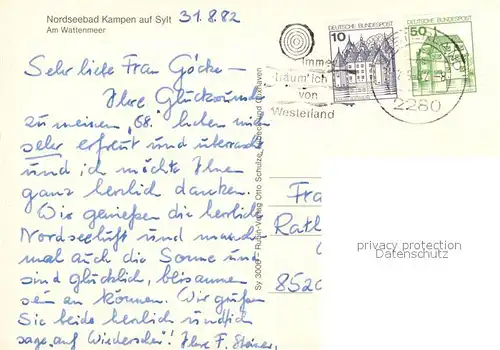 Nordseebad Kampen auf Sylt
Am Wattenmeer
31.8.82
Sehr liebe Frau Göcke –
Ihre Glückwün
zu meinem "68. haben mich
sehr erfreut und überrascht
und ich möchte Ihnen
ganz herzlich danken.
Wir genießen die herrliche
Nordseeluft und manch-
mal auch die Sonne und
sind glücklich, beisammen
sein zu können. Wir grüßen
Sie beide herzlich und ich
sage "auf Wiedersehn"! Ihre F.
Sy 3006 – Rubin-Verlag Otto Schulze, Lübeck und Cuxhaven
Imme
träum' ich
von
Westerland
DEUTSCHE BUNDESPOST
10
DEUTSCHE BUNDESPOST
50
2280
Fra
Rath
8520
privacy protection
Datenschutz